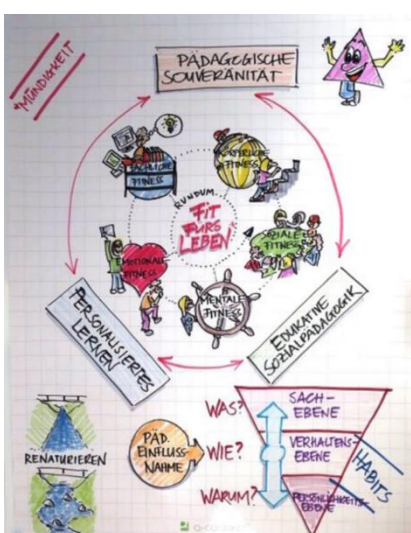 "MÜNDIGKEIT"
PÄDAGOGISCHE
SOUVERÄNITÄT
FACHLICHE
FITNESS
KÖRPERLICHE
FITNESS
RUNDUM...
FIT
FÜRS
LEBEN
EMOTIONALE
FITNESS
SOZIALE
FITNESS
MENTALE
FITNESS
PERSONALISIERTES
LERNEN
EDUKATIVE
SOZIALPÄDAGOGIK
RENATURIEREN
PÄD.
EINFLUSS-
NAHME
WAS?
WIE?
WARUM?
SACH-
EBENE
VERHALTENS-
EBENE
PERSÖNLICHKEITS-
EBENE
HABITS